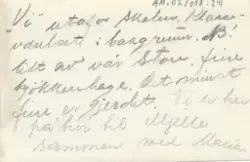 AM.02/008:24
"Vi" utafor skolen. Klasse
værelset i bakgrunn. B.
litt av vår store, fine
kjøkkenhage. Det minst
fine er gjerdet. Vi er her
på tur til Mjelle
sammen med Maria